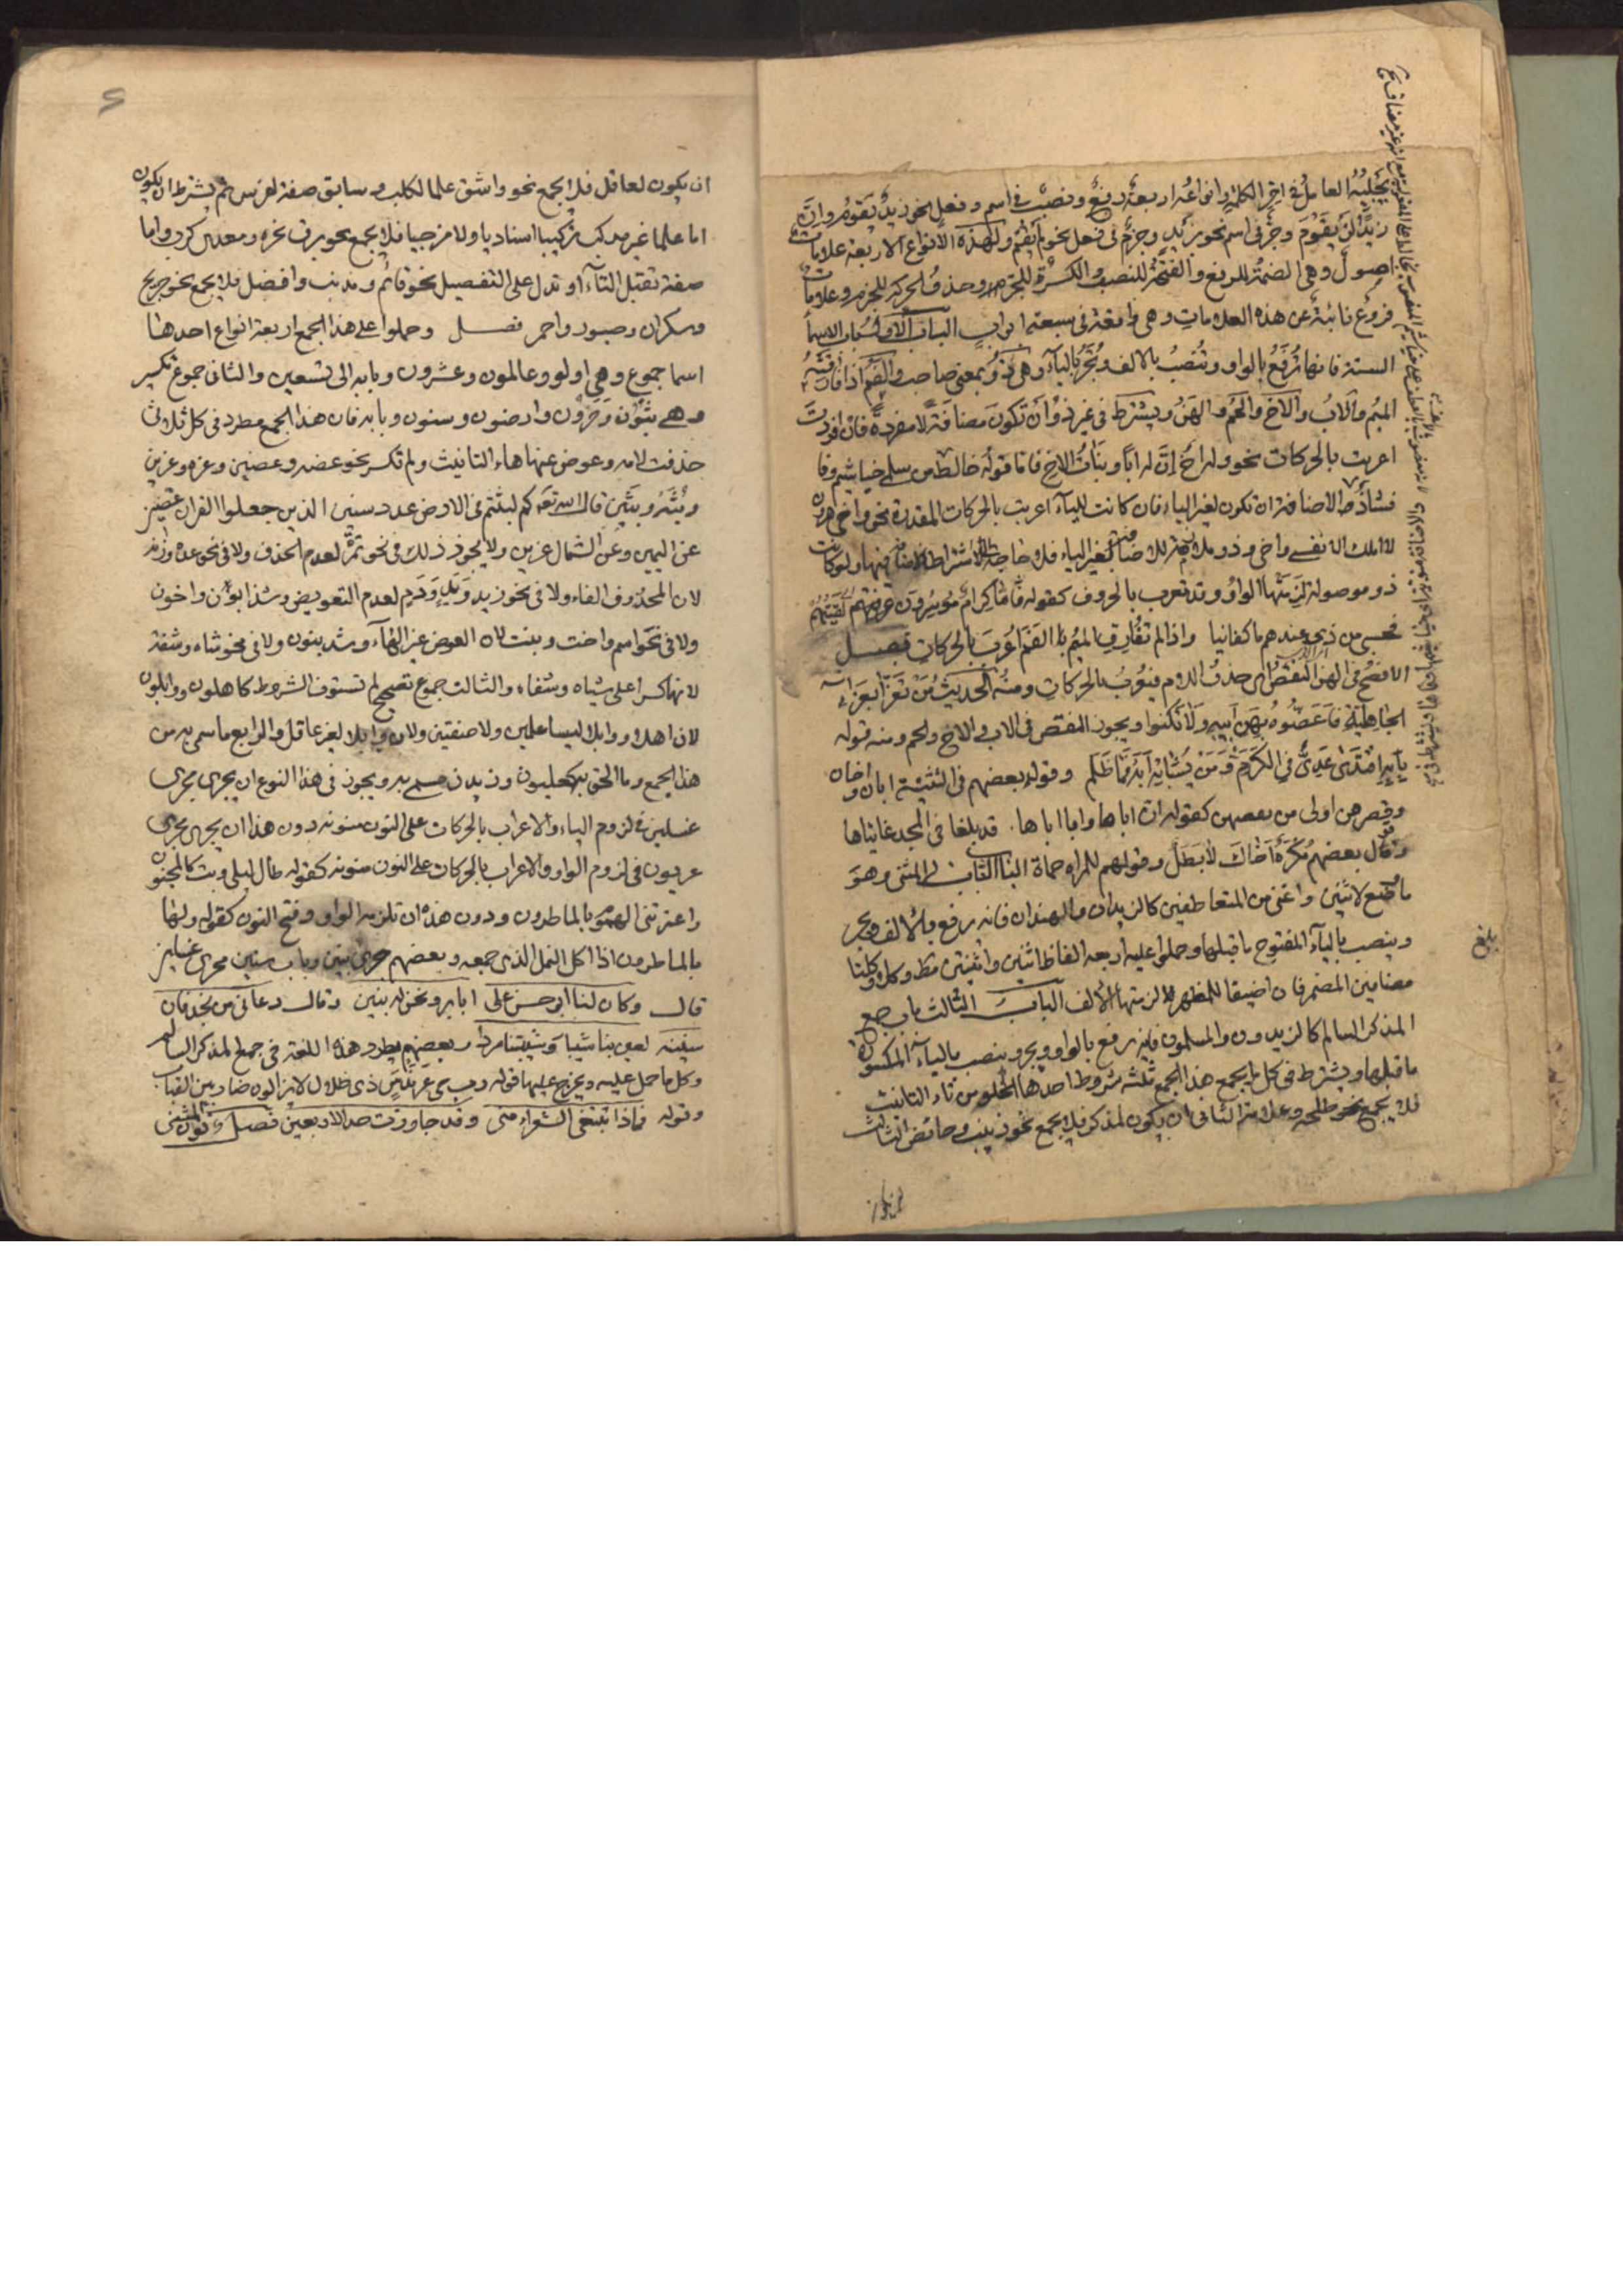 يجلبه العامل في اخر الكلمة وانواعه اربعة رفع ونصب في اسم وفعل نحو زيد يقوم وان
زيدا لن يقوم وجر في اسم نحو بزيد وجزم في فعل نحو لم يقم ولهذه الانواع الاربعة علامات
اصول وهي الضمة للرفع والفتحة للنصب والكسرة للجر وحذف الحركة للجزم وعلامات
فروع نائبة عن هذه العلامات وهي واقعة في سبعة ابواب الباب الاول باب الاسما
الستة فانها ترفع بالواو وتنصب بالالف وتجر بالياء وهي ذو بمعنى صاحب والفم اذا فارقته
الميم والاب والاخ والحم والهن ويشترط في غير ذو ان تكون مضافة لا مفردة فان افردت
اعربت بالحركات نحو وله اخ ان له ابا وبنات الاخ فاما قوله خالط من سلمى خياشيم وفا
فشاذ الاضافة ان تكون لغير الياء فان كانت للياء اعربت بالحركات المقدرة نحو واخي هرون
لا املك الا نفسي واخي وذو ملازمة للاضافة لغير الياء فلا حاجة لاشتراط الاضافة فيها ولو كانت
ذو موصولة لزمتها الواو وقد تعرب بالحروف كقوله فاما كرام موسرون لقيتهم
فحسبي من ذي عندهم ما كفانيا واذا لم تفارق الميم الفم اعرب بالحركات فصل
الافصح في الهن النقص اي حذف اللام فيعرب بالحركات ومنه الحديث من تعزا بعزاء
الجاهلية فاعضوه بهن ابيه ولا تكنوا ويجوز النقص في الاب والاخ والحم ومنه قوله
بابه اقتدى عدي في الكرم ومن يشابه ابه فما ظلم وقول بعضهم في التثنية ابان واخان
وقصرهن اولى من نقصهن كقوله ان اباها وابا اباها قد بلغا في المجد غايتاها
وقال بعضهم مكره اخاك لا بطل وقولهم للمراه حماة الباب الثاني المثنى وهو
ما وضع لاثنين واغنى عن المتعاطفين كالزيدان والهندان فانه يرفع بالالف ويجر
وينصب بالياء المفتوح ما قبلها وحملوا عليه اربعه الفاظ اثنين واثنتين مط وكلا وكلتا
مضافين لمضمر فان اضيفا للمظهر لزمتها الالف الباب الثالث باب جمع
المذكر السالم كالزيدون والمسلمون فانه يرفع بالواو ويجر وينصب بالياء المكسور
ما قبلها ويشترط في كل ما يجمع هذا الجمع ثلثه شروط احدها الخلو من تاء التانيث
فلا يجمع نحو طلحه وعلامة الثاني ان يكون لمذكر فلا يجمع نحو زينب وحائض الثالث
بلغ
ان يكون لعاقل فلا يجمع نحو واشق علما لكلب وسابق صفة لفرس ثم يشترط ان يكون
اما علما غير مركب تركيبا اسناديا ولا مزجيا فلا يجمع نحو برق نحره ومعدي كرب واما
صفة تقبل التاء او تدل على التفضيل نحو قائم ومذنب وافضل فلا يجمع نحو جريح
وسكران وصبور واحمر فصل وحملوا على هذا الجمع اربعة انواع احدها
اسما جموع وهي اولو وعالمون وعشرون وبابه الى تسعين والثاني جموع تكسير
وهي بنون وحرون وارضون وسنون وبابه فان هذا الجمع مطرد في كل ثلاثي
حذفت لامه وعوض عنها هاء التانيث ولم تكسر نحو عضه وعضين وعزه وعزين
وثبه وثبين قال الله تعه كم لبثتم في الارض عدد سنين الذين جعلوا القران عضين
عن اليمين وعن الشمال عزين ولا يجوز ذلك في نحو تمرة لعدم الحذف ولا في نحو عده وزنه
لان المحذوف الفاء ولا في نحو زيد ويد ودم لعدم التعويض وشذ ابون واخون
ولا في نحو اسم واخت وبنت لان العوض غير الهاء وشد بنون ولا في نحو شاه وشفة
لانهما كسرا على شياه وشفاء والثالث جموع تصحيح لم تستوف الشروط كاهلون ووابلون
لان اهلا ووابلا ليسا علمين ولا صفتين ولان وابلا لغير عاقل والرابع ما سمي به من
هذا الجمع وما الحق به كعليون وزيدون مسمى به ويجوز في هذا النوع ان يجري مجرى
غسلين في لزوم الياء والاعراب بالحركات على النون منونه دون هذا ان يجري مجرى
عربون في لزوم الواو والاعراب بالحركات على النون منونه كقوله طال ليلي وبت كالمجنون
واعترتني الهموم بالماطرون ودون هذه ان تلزمه الواو وفتح النون كقوله ولها
بالماطرون اذا اكل النمل الذي جمعه وبعضهم يجري بنين وباب سنين مجرى غسلين
قال وكان لنا ابو حسن علي ابا برا ونحن له بنين وقال دعاني من نجد فان
سنينه لعبن بنا شيبا وشيبننا مردا وبعضهم يطرد هذه اللغة في جمع المذكر السالم
وكل ما حمل عليه ويخرج عليها قوله رب حي عرندس ذي طلال لا يزالون ضاربين القباب
وقوله فماذا تبتغي الشعراء مني وقد جاوزت حد الاربعين فصل ونون المثنى